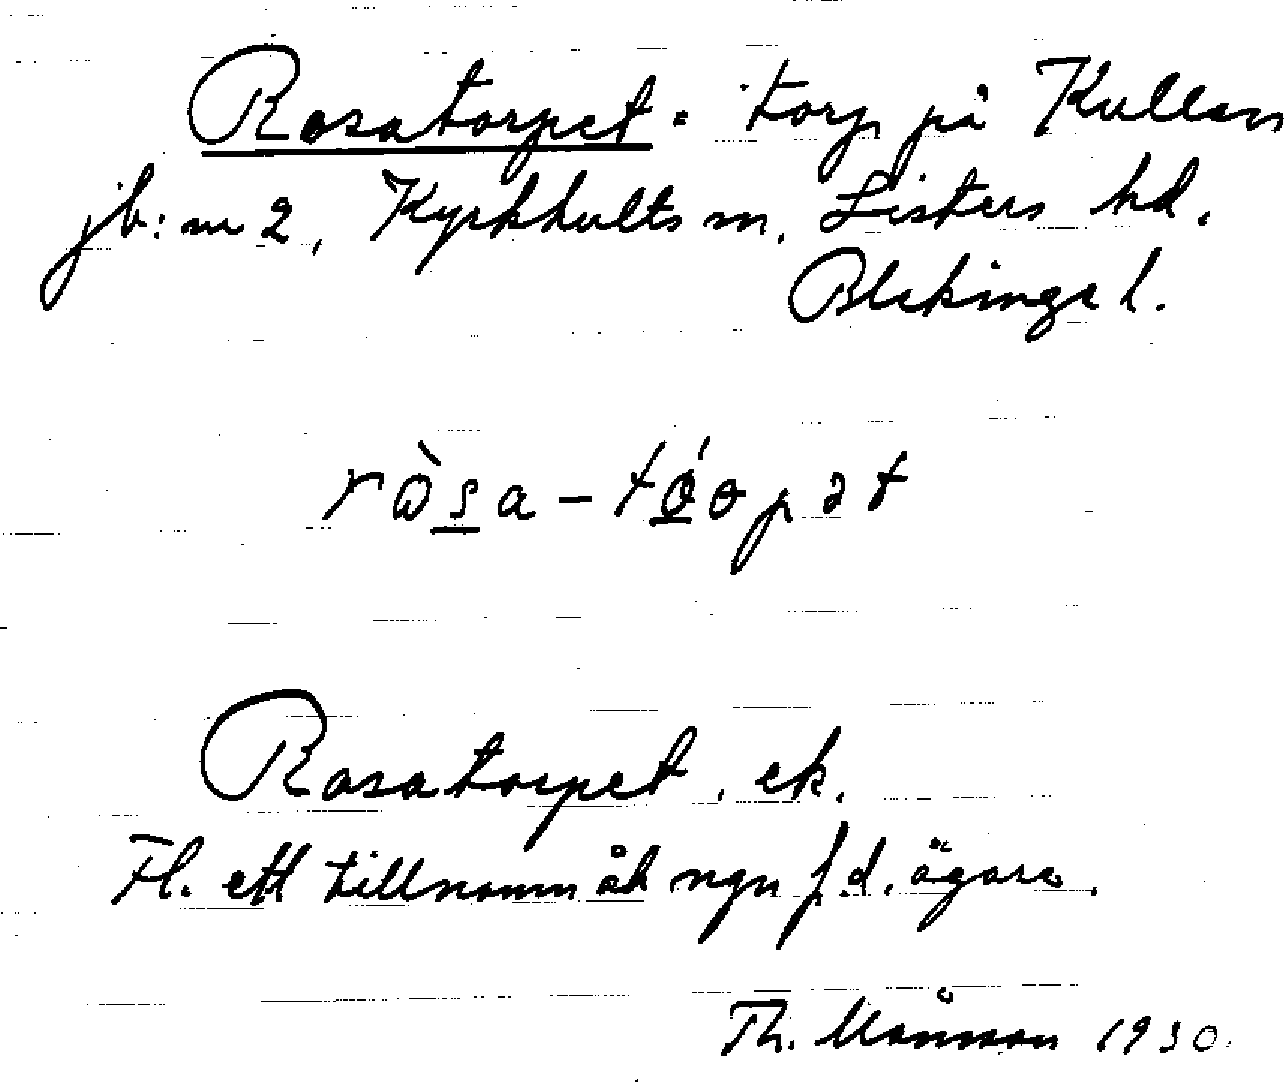 Rosatorpet = torp på Kullen
jb: nr 2, Kyrkhults sn, Listers hd.
Blekinge l.
ròsa - tóopət
Rosatorpet, ek.
Fl. ett tillnamn åt ngn f.d. ägare.
Th. Månsson 1930.